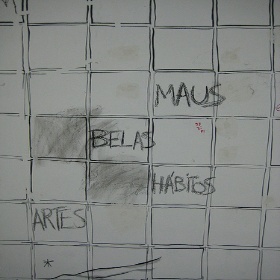 MAUS
BELAS
HÁBITOS
ARTES